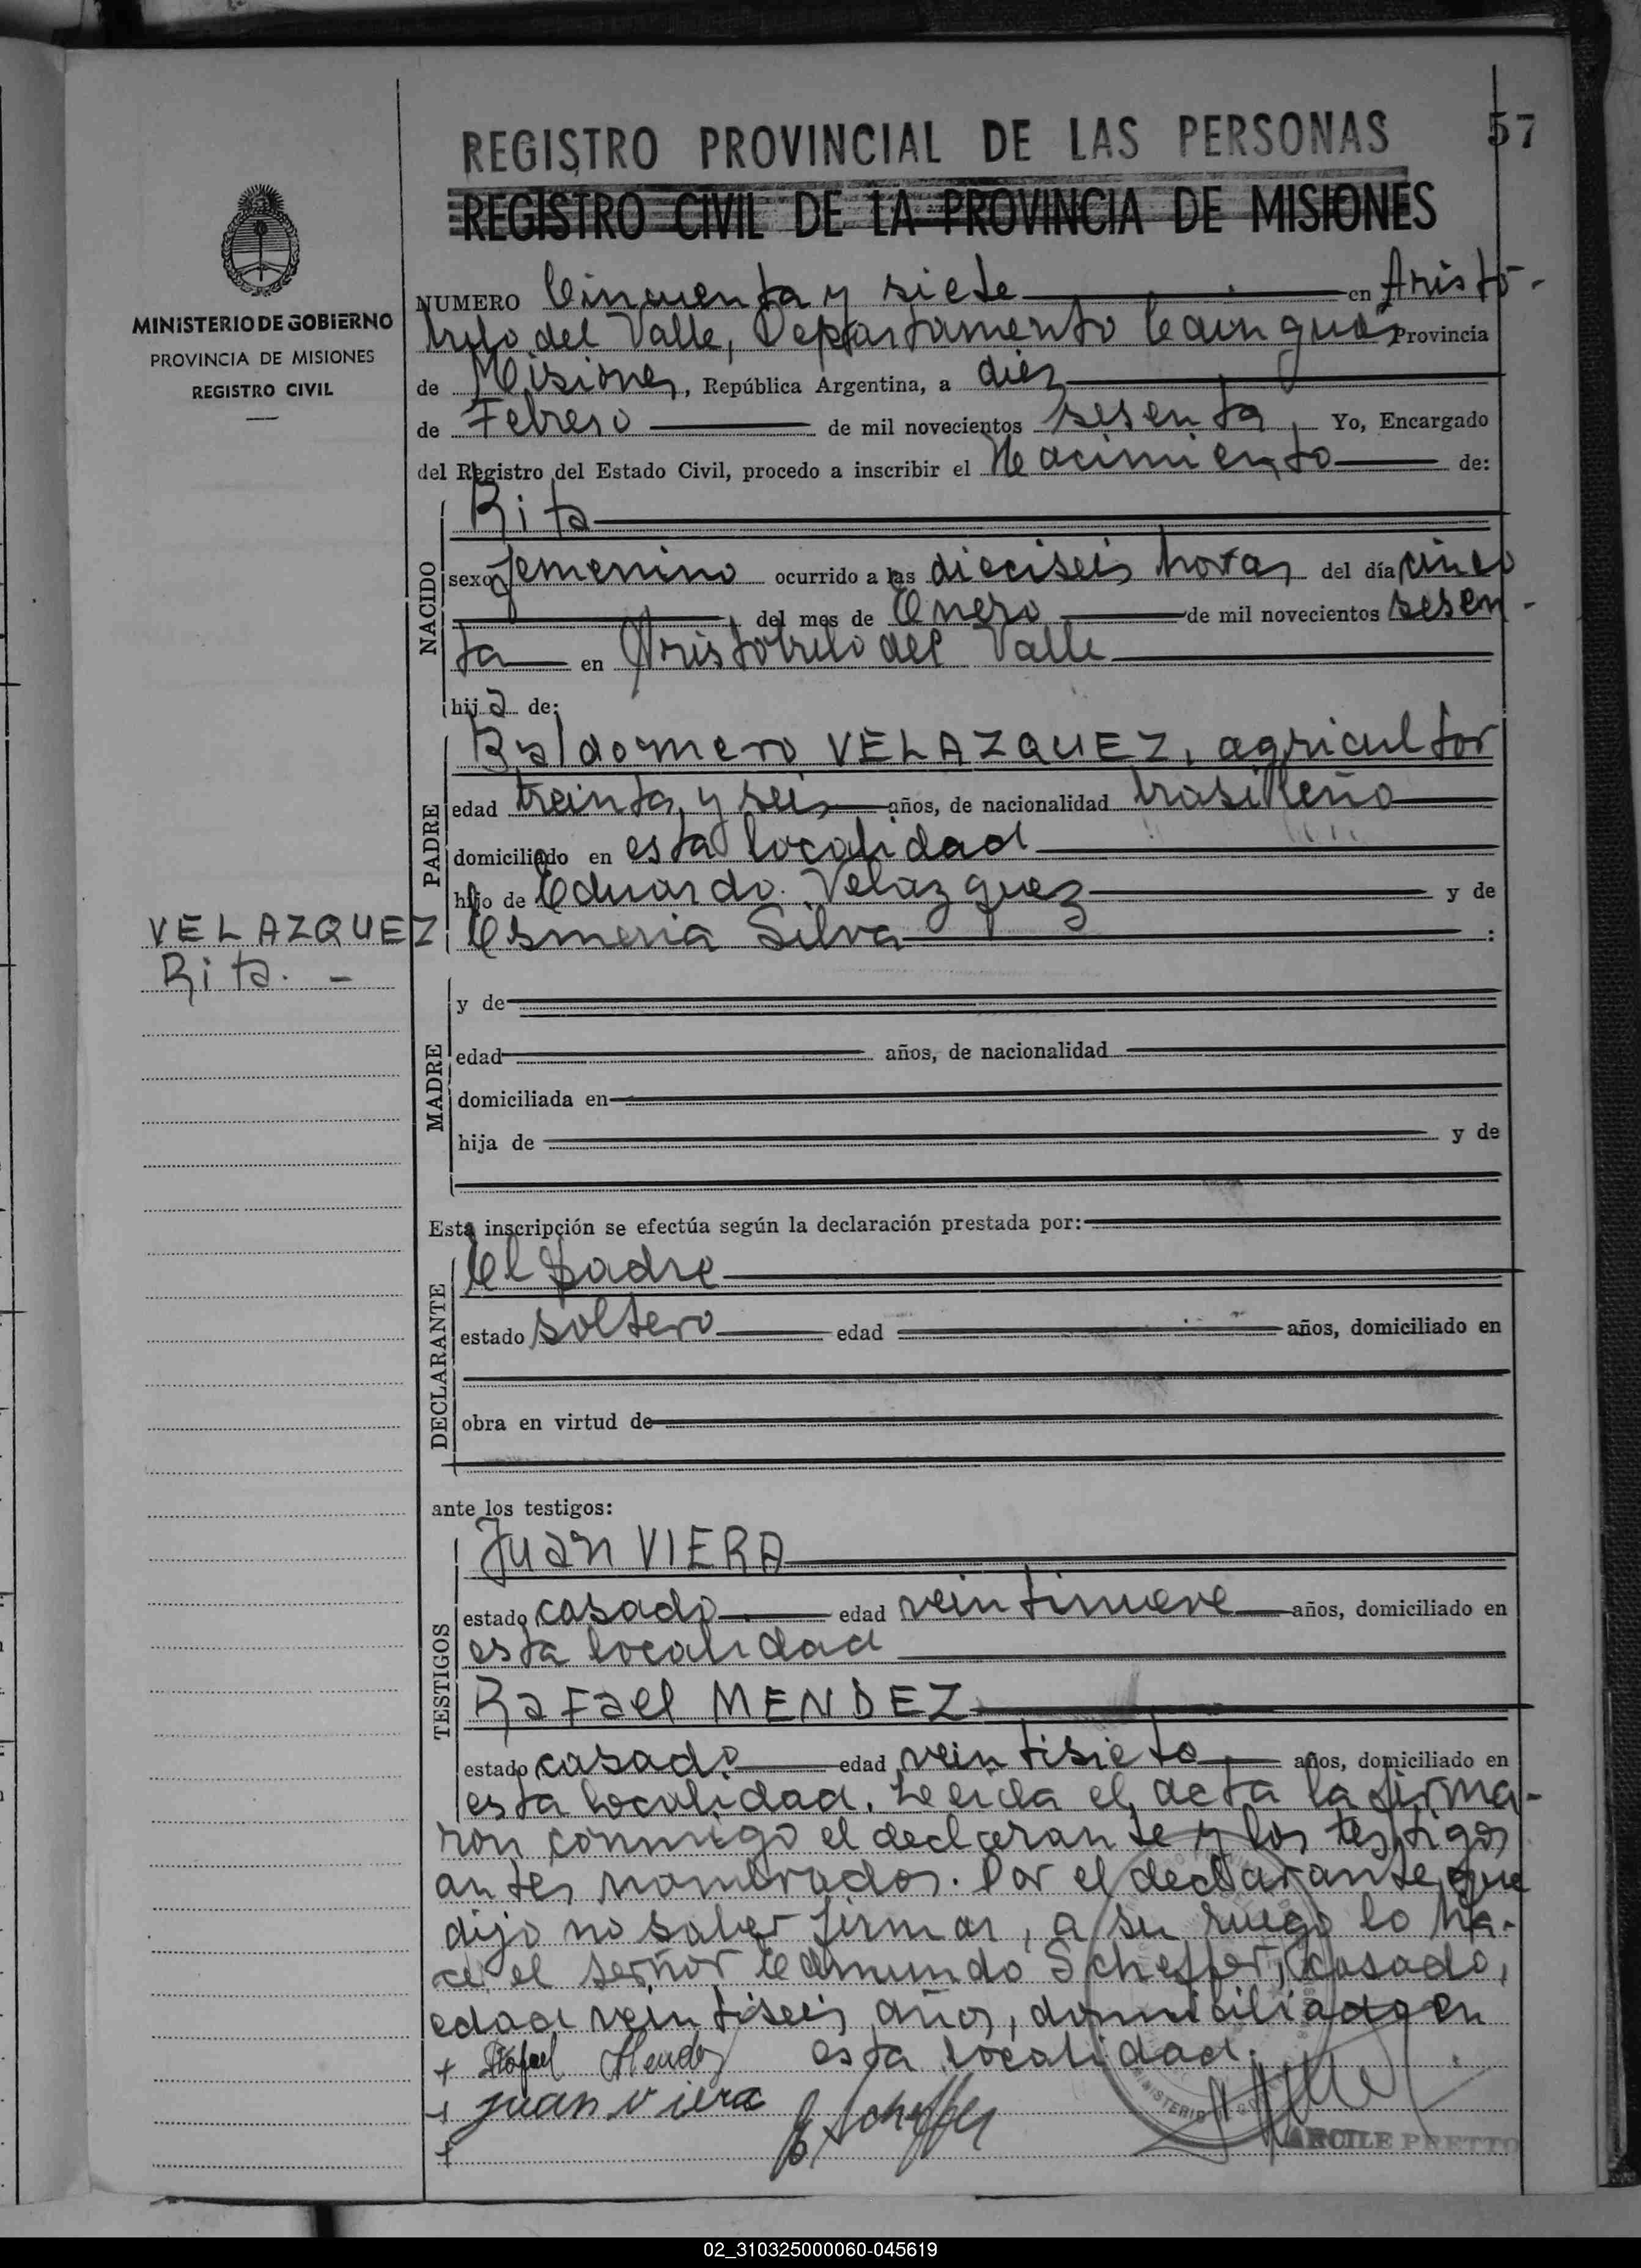 57
REGISTRO PROVINCIAL DE LAS PERSONAS
REGISTRO CIVIL DE LA PROVINCIA DE MISIONES
MINISTERIO DE GOBIERNO
PROVINCIA DE MISIONES
REGISTRO CIVIL
NUMERO Cincuenta y siete en Aristó-
bulo del Valle, Departamento Cainguás Provincia
de Misiones, República Argentina, a diez
de Febrero de mil novecientos sesenta Yo, Encargado
del Registro del Estado Civil, procedo a inscribir el Nacimiento de:
NACIDO
Rita
sexo femenino ocurrido a las dieciseis horas del día cinco
del mes de Enero de mil novecientos sesen-
ta en Aristobulo del Valle
hija de:
PADRE
Baldomero VELAZQUEZ, agricultor
edad treinta y seis años, de nacionalidad brasileño
domiciliado en esta localidad
hijo de Eduardo Velazquez y de
Esmeria Silva :
VELAZQUEZ
Rita. -
MADRE
y de
edad años, de nacionalidad
domiciliada en
hija de y de
Esta inscripción se efectúa según la declaración prestada por:
DECLARANTE
El padre
estado soltero edad años, domiciliado en
obra en virtud de
ante los testigos:
TESTIGOS
Juan VIERA
estado casado edad veintinueve años, domiciliado en
esta localidad
Rafael MENDEZ
estado casado edad veintisiete años, domiciliado en
esta localidad. Leída el acta la firma-
ron conmigo el declarante y los testigos
antes nombrados. Por el declarante que
dijo no saber firmar, a su ruego lo ha-
ce el señor Edmundo Scheffer, casado,
edad veintiseis años, domiciliado en
+ Rafael Mendez esta localidad.
+ juan viera
E Scheffer
+
PRETTO
MINISTERIO
02_310325000060-045619